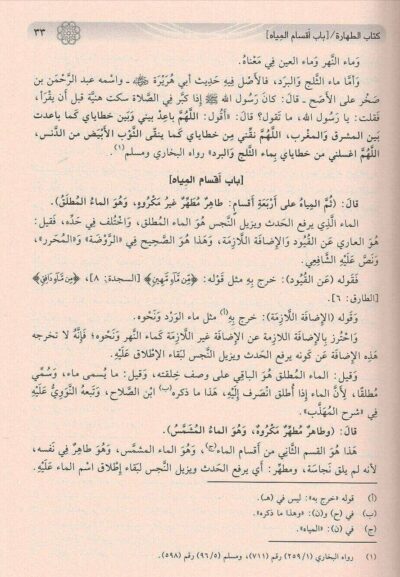 كتاب الطهارة/[باب أقسام المياه]
٣٣
وَماء النَّهر وَماء العين فِي مَعْنَاهُ.
وَأمَّا ماء الثَّلج وَالبَرَد، فالأَصْل فِيهِ حَدِيث أبي هُرَيْرَة ﵁ ـ وَاسْمه عبد الرَّحْمَن بن
صَخْر على الأَصَح ـ قَالَ: كانَ رَسُول الله ﷺ إِذا كبَّر فِي الصَّلاة سكت هنيَّة قبل أَن يقْرَأ،
فَقلت: يا رَسُول الله، ما تَقول؟ قالَ: «أقُول: اللَّهُمَّ باعِدْ بيني وَبَين خطاياي كَما باعدت
بَين المشرق والمغرب، اللَّهُمَّ نقِّني من خطاياي كَما ينقَّى الثَّوْب الأَبْيَض من الدَّنس،
اللَّهُمَّ اغسلني من خطاياي بِماء الثَّلج والبرد» رواه البخاري ومسلم(١).
[باب أقسام المياه]
قالَ: (ثُمَّ المِياهُ على أَرْبَعَةِ أقسامٍ: طاهرٌ مُطَهِّرٌ غيرُ مَكْروهٍ، وَهُوَ الماءُ المطلَقُ).
الماء الَّذِي يرفع الحَدث ويزيل النَّجس هُوَ الماء المُطلق، وَاخْتُلف فِي حَدِّه، فَقيل:
هُوَ العاري عَن القُيُود وَالإضافة اللَّازِمَة، وَهَذا هُوَ الصَّحِيح فِي «الرَّوْضَة» وَ«المُحَرر»،
وَنَصَّ عَلَيْهِ الشَّافِعِي.
فَقَوله (عَن القُيُود): خرج بِهِ مثل قَوْله: ﴿مِّن مَّآءٖ مَّهِينٖ﴾ [السجدة: ٨]، ﴿مِن مَّآءٖ دَافِقٖ﴾
[الطارق: ٦].
وَقَوله (الإِضافَة اللَّازِمَة): خرج بِهِ(أ) مثل ماء الوَرْد وَنَحْوه.
وَاحْتُرز بِالإِضافَة اللَّازِمَة عن الإضافة غير اللَّازِمَة كَماء النَّهر وَنَحْوه؛ فَإِنَّهُ لا تخرجه
هَذِه الإِضافَة عَن كَونه يرفع الحَدث ويزيل النَّجس لبَقاء الإطلاق عَلَيْهِ.
وَقيل: الماء المُطلق هُوَ الباقِي على وصف خِلقته، وَقيل: ما يسمى ماء، وَسُمِّي
مُطلقًا، لِأَنَّ الماء إِذا أُطلق انْصَرف إِلَيْهِ، هَذا ما ذكره(ب) ابْن الصّلاح، وَتَبعهُ النَّوَوِيُّ عَلَيْهِ
فِي «شرح المُهَذَّب».
قالَ: (وطاهرٌ مطَهِّرٌ مَكْرُوهٌ، وَهُوَ الماءُ المُشَمَّسُ).
هَذا هُوَ القسم الثَّانِي من أقسام الماء(ج)، وَهُوَ الماء المشمَّس، وَهُوَ طاهرٌ فِي نَفسه،
لأنه لم يلق نَجاسَة، ومطهِّر: أَي يرفع الحَدث ويزيل النَّجس لبَقاء إِطْلاق اسْم الماء عَلَيْهِ.
(أ) قوله «خرج به»: ليس في (هـ).
(ب) في (ح) و(ن): «وهذا ما ذكره».
(ج) في (ن): «المياه».
(١) رواه البخاري (١/ ٢٥٩) رقم (٧١١)، ومسلم (٥/ ٩٦) رقم (٥٩٨).